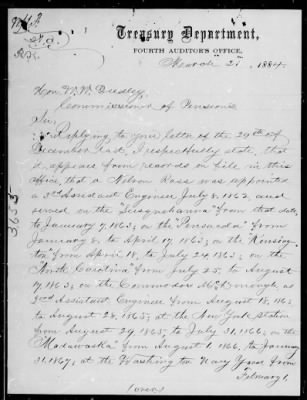 Treasury Department,
FOURTH AUDITOR'S OFFICE,
March 21, 1884.
Hon. W. W. Dudley,
Commissioner of Pensions
Sir:
Replying to your letter of the 29th of
December last, I respectfully state, that
it appears from records on file in this
office, that a Nelson Ross was appointed
a 3rd Assistant Engineer July 8, 1862, and
served on the "Susquehanna" from that date,
to January 7, 1863; on the "Pensacola" from
January 8, to April 17, 1863; on the "Kensing-
ton" from April 18, to July 24, 1863; on the
"North Carolina" from July 25, to August
17, 1863; on the Commodore McDonough as
3rd Assistant Engineer from August 18, 1863
to August 28, 1865; at the New York Station
from August 29, 1865, to July 31, 1866; on the
"Madawaska" from August 1, 1866, to January
31, 1867; at the Washington Navy Yard from
February 1,
(over)